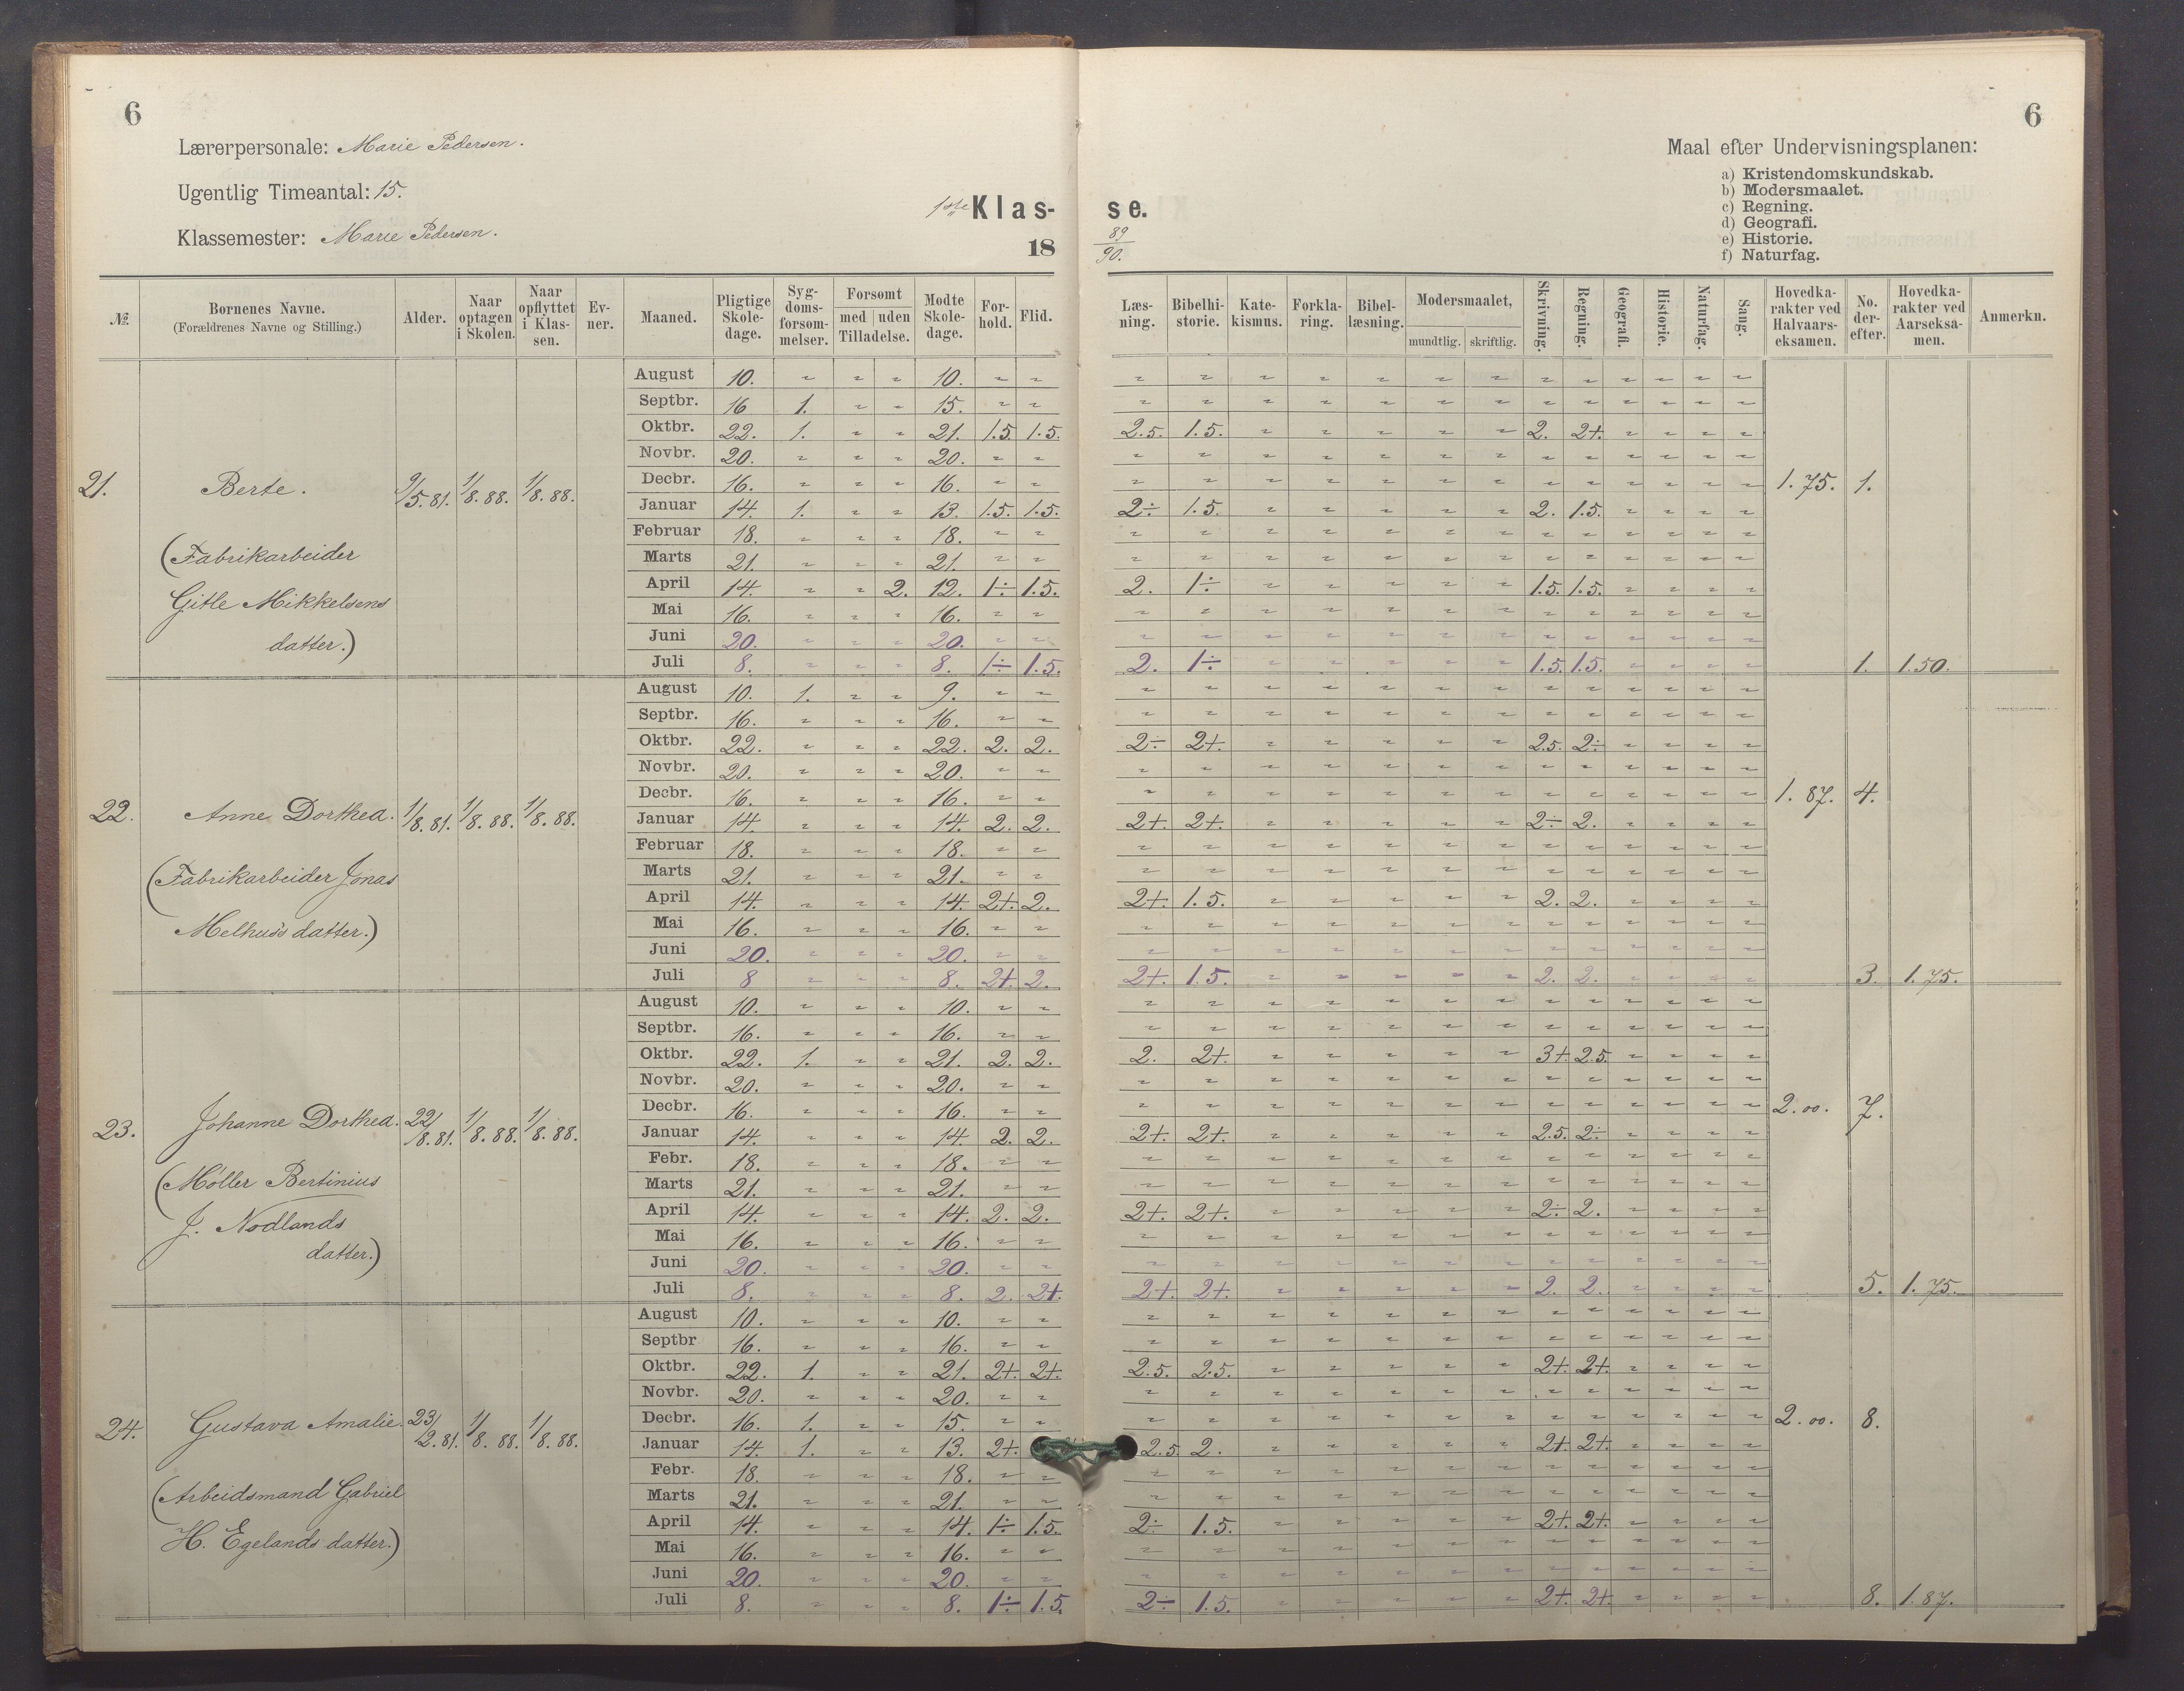 6
6
Lærerpersonale: Marie Pedersen.
Ugentlig Timeantal: 15.
Klassemester: Marie Pedersen.
1ste Klas-
se.
18
89/90.
Maal efter Undervisningsplanen:
a) Kristendomskundskab.
b) Modersmaalet.
c) Regning.
d) Geografi.
e) Historie.
f) Naturfag.
№. | Bornenes Navne. (Forældrenes Navne og Stilling.) | Alder. | Naar optagen i Skolen. | Naar opflyttet i Klas-sen. | Ev-ner. | Maaned. | Pligtige Skole-dage. | Syg-doms-forsom-melser. | Forsomt med | uden Tilladelse. | Modte Skole-dage. | For-hold. | Flid. | Læs-ning. | Bibelhi-storie. | Kate-kismus. | Forkla-ring. | Bibel-læsning. | Modersmaalet, mundtlig. | skriftlig. | Skrivning. | Regning. | Geografi. | Historie. | Naturfag. | Sang. | Hovedka-rakter ved Halvaars-eksamen. | No. der-efter. | Hovedka-rakter ved Aarseksa-men. | Anmerkn.
21. Berte. 9/5.81. 1/8.88. 1/8.88.
(Fabrikarbeider
Gitle Mikkelsens
datter.)
August 10. 10.
Septbr. 16 1. 15.
Oktbr. 22. 1. 21. 1.5. 1.5. 2.5. 1.5. 2. 2+.
Novbr. 20. 20.
Decbr. 16. 16. 1.75. 1.
Januar 14. 1. 13. 1.5. 1.5. 2÷ 1.5. 2. 1.5.
Februar 18. 18.
Marts 21. 21.
April 14. 2. 12. 1÷ 1.5. 2. 1÷ 1.5. 1.5.
Mai 16. 16.
Juni 20. 20.
Juli 8. 8. 1÷ 1.5. 2. 1÷ 1.5. 1.5. 1. 1.50.
22. Anne Dorthea. 1/8.81. 1/8.88. 1/8.88.
(Fabrikarbeider Jonas
Melhus's datter.)
August 10. 1. 9.
Septbr. 16. 16.
Oktbr. 22. 22. 2. 2. 2÷ 2+. 2.5. 2÷
Novbr. 20. 20.
Decbr. 16. 16. 1.87. 4.
Januar 14. 14. 2. 2. 2+. 2+. 2÷ 2.
Februar 18. 18.
Marts 21. 21.
April 14. 14. 2+. 2. 2+. 1.5. 2. 2.
Mai 16. 16.
Juni 20. 20.
Juli 8 8. 2+. 2. 2+. 1.5. 2. 2. 3. 1.75.
23. Johanne Dorthea. 22/8.81. 1/8.88. 1/8.88.
(Möller Bertinius
J. Nodlands
datter.)
August 10. 10.
Septbr. 16. 16.
Oktbr. 22. 1. 21. 2. 2. 2. 2+. 3+. 2.5.
Novbr. 20. 20.
Decbr. 16. 16. 2.00. 7.
Januar 14. 14. 2. 2. 2+. 2+. 2.5. 2÷
Febr. 18. 18.
Marts 21. 21.
April 14. 14. 2. 2. 2+. 2+. 2÷ 2.
Mai 16. 16.
Juni 20. 20.
Juli 8. 8. 2. 2+. 2+. 2+. 2. 2. 5. 1.75.
24. Gustava Amalie. 23/2.81. 1/8.88. 1/8.88.
(Arbeidsmand Gabriel
H. Egelands datter.)
August 10. 10.
Septbr 16. 16.
Oktbr. 22. 1. 21. 2+. 2+. 2.5. 2.5. 2+. 2+.
Novbr. 20. 20.
Decbr. 16. 1. 15. 2.00. 8.
Januar 14. 1. 13. 2+. 2.5. 2. 2+. 2+.
Febr. 18. 18.
Marts 21. 21.
April 14. 14. 1÷ 1.5. 2÷ 1.5. 2+. 2+.
Mai 16. 16.
Juni 20. 20.
Juli 8. 8. 1÷ 1.5. 2÷ 1.5. 2+. 2+. 8. 1.87.